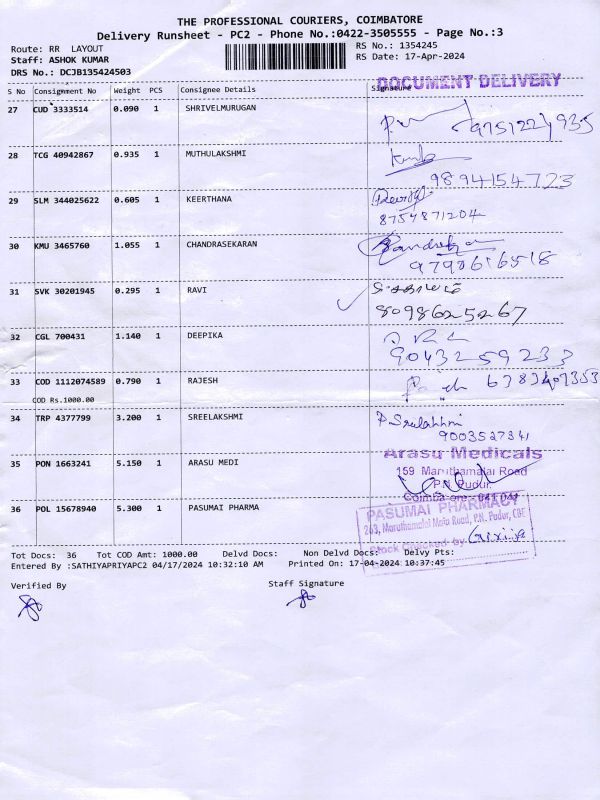 THE PROFESSIONAL COURIERS, COIMBATORE
Delivery Runsheet - PC2 - Phone No.:0422-3505555 - Page No.:3
Route: RR LAYOUT
RS No.: 1354245
Staff: ASHOK KUMAR
RS Date: 17-Apr-2024
DRS No.: DCJB135424503
DOCUMENT DELIVERY
S No Consignment No Weight PCS Consignee Details Signature
27 CUD 3333514 0.090 1 SHRIVELMURUGAN
28 TCG 40942867 0.935 1 MUTHULAKSHMI
9894154723
29 SLM 344025622 0.605 1 KEERTHANA
8754871204
30 KMU 3465760 1.055 1 CHANDRASEKARAN
9798616518
31 SVK 30201945 0.295 1 RAVI
8098625267
32 CGL 700431 1.140 1 DEEPIKA
9043259233
33 COD 1112074589 0.790 1 RAJESH
COD Rs.1000.00
34 TRP 4377799 3.200 1 SREELAKSHMI P Sreelakhmi
9003527341
Arasu Medicals
35 PON 1663241 5.150 1 ARASU MEDI 159 Maruthamalai Road
P.N. Pudur,
Coimbatore - 641 041
36 POL 15678940 5.300 1 PASUMAI PHARMA PASUMAI PHARMACY
263, Maruthamalai Main Road, P.N. Pudur, CBE
Stock by Girija
Tot Docs: 36 Tot COD Amt: 1000.00 Delvd Docs: Non Delvd Docs: Delvy Pts:
Entered By :SATHIYAPRIYAPC2 04/17/2024 10:32:10 AM Printed On: 17-04-2024 10:37:45
Verified By Staff Signature